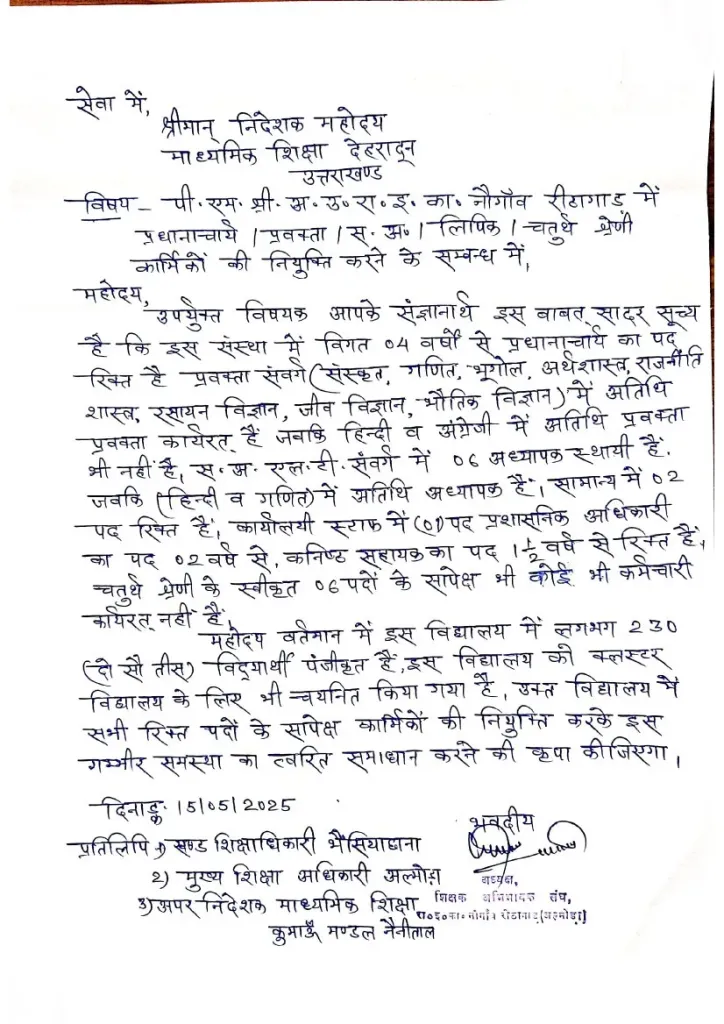 सेवा में,
श्रीमान् निदेशक महोदय
माध्यमिक शिक्षा देहरादून
उत्तराखण्ड
विषय - पी.एम.श्री.अ.उ.रा.इ.का. नौगाँव रीठागाड़ में
प्रधानाचार्य / प्रवक्ता / स.अ. / लिपिक / चतुर्थ श्रेणी
कार्मिकों की नियुक्ति करने के सम्बन्ध में,
महोदय,
उपर्युक्त विषयक आपके संज्ञानार्थ इस बाबत् सादर सूच्य
है कि इस संस्था में विगत 04 वर्षों से प्रधानाचार्य का पद
रिक्त है प्रवक्ता संवर्ग (संस्कृत, गणित, भूगोल, अर्थशास्त्र, राजनीति
शास्त्र, रसायन विज्ञान, जीव विज्ञान, भौतिक विज्ञान) में अतिथि
प्रवक्ता कार्यरत् हैं जबकि हिन्दी व अंग्रेजी में अतिथि प्रवक्ता
भी नहीं है, स.अ. एल.टी. संवर्ग में 06 अध्यापक स्थायी हैं.
जबकि (हिन्दी व गणित) में अतिथि अध्यापक हैं, सामान्य में 02
पद रिक्त हैं, कार्यालयी स्टाफ में (01) पद प्रशासनिक अधिकारी
का पद 02 वर्ष से, कनिष्ट सहायक का पद 1½ वर्ष से रिक्त हैं,
चतुर्थ श्रेणी के स्वीकृत 06 पदों के सापेक्ष भी कोई भी कर्मचारी
कार्यरत् नहीं हैं,
महोदय वर्तमान में इस विद्यालय में लगभग 230
(दो सौ तीस) विद्यार्थी पंजीकृत हैं, इस विद्यालय को क्लस्टर
विद्यालय के लिए भी चयनित किया गया है, उक्त विद्यालय में
सभी रिक्त पदों के सापेक्ष कार्मिकों की नियुक्ति करके इस
गम्भीर समस्या का त्वरित समाधान करने की कृपा कीजिएगा,
दिनाङ्क 15/05/2025
भवदीय
प्रतिलिपि 1) खण्ड शिक्षाधिकारी भैंसियाछाना
2) मुख्य शिक्षा अधिकारी अल्मोड़ा
अध्यक्ष,
3) अपर निदेशक माध्यमिक शिक्षा
शिक्षक अभिभावक संघ,
रा०इ०का० नौगाँव रीठागाड़ (अल्मोड़ा)
कुमाऊँ मण्डल नैनीताल